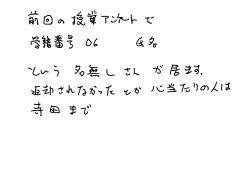 前回の授業アンケートで
学籍番号 06 氏名
という名無しさんが居ます.
返却されなかったとか心当たりの人は
寺田まで